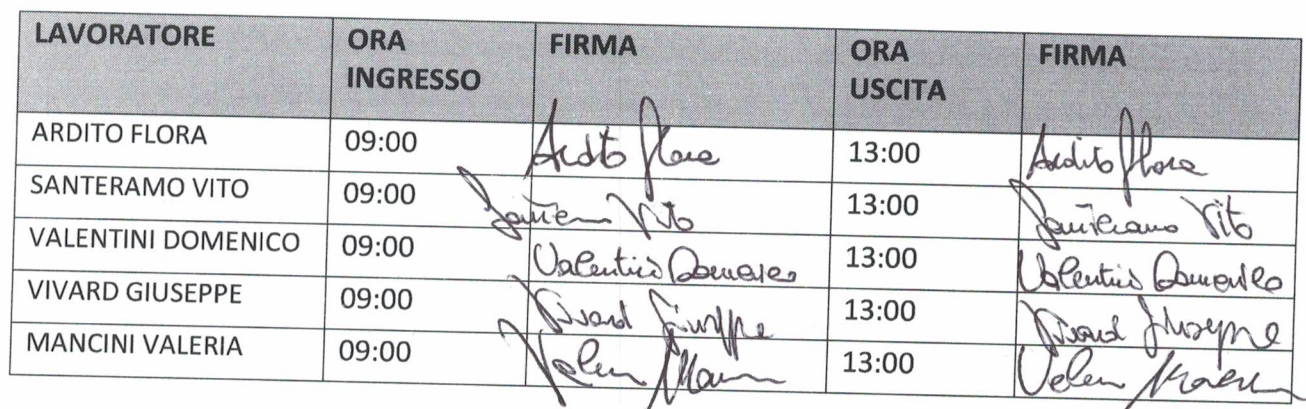 LAVORATORE ORA INGRESSO FIRMA ORA USCITA FIRMA
ARDITO FLORA 09:00 Ardito Flora 13:00 Ardito Flora
SANTERAMO VITO 09:00 Vito 13:00 Santeramo Vito
VALENTINI DOMENICO 09:00 Valentini Domenico 13:00 Valentini Domenico
VIVARD GIUSEPPE 09:00 Vivard Giuseppe 13:00 Vivard Giuseppe
MANCINI VALERIA 09:00 13:00